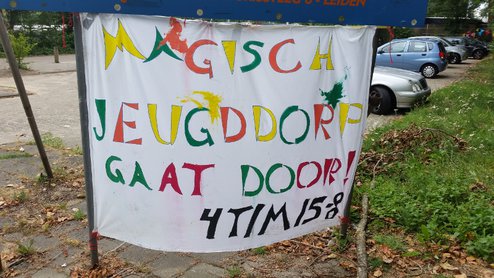 LEIDEN
MAGISCH
JEUGDDORP
GAAT DOOR!
4 T/M 15-8